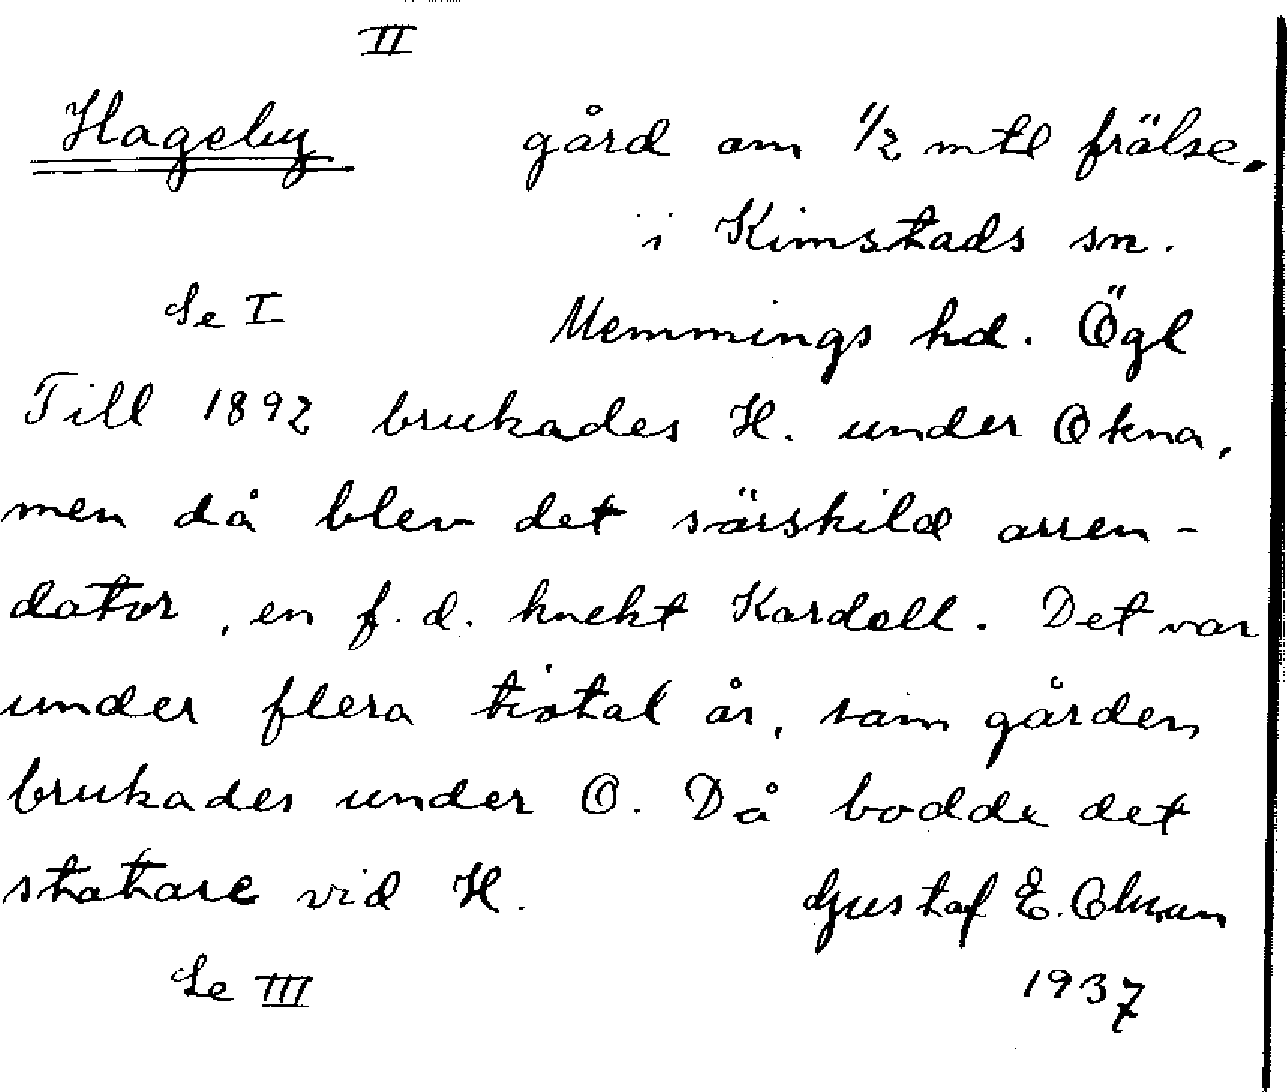 II
Hageby gård om 1/2 mtl frälse.
i Kimstads sn.
Se I Memmings hd. Ögl
Till 1892 brukades H. under Okna,
men då blev det särskild arren-
dator, en f.d. knekt Kardell. Det var
under flera tiotal år, som gården
brukades under O. Då bodde det
statare vid H. Gustaf E.
Se III 1937